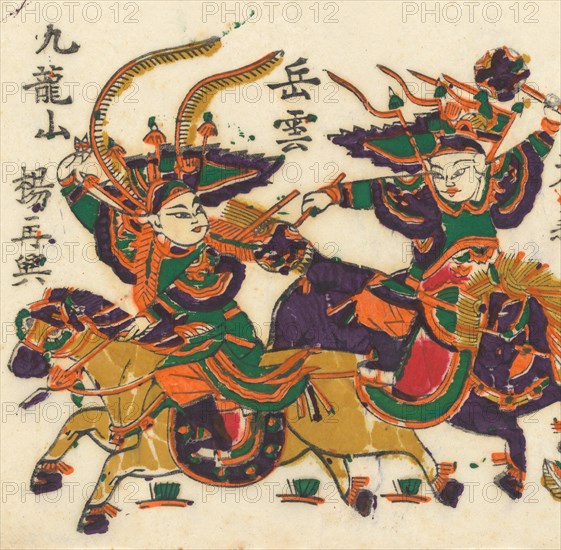 九龍山
楊再興
岳雲
PHOTO12